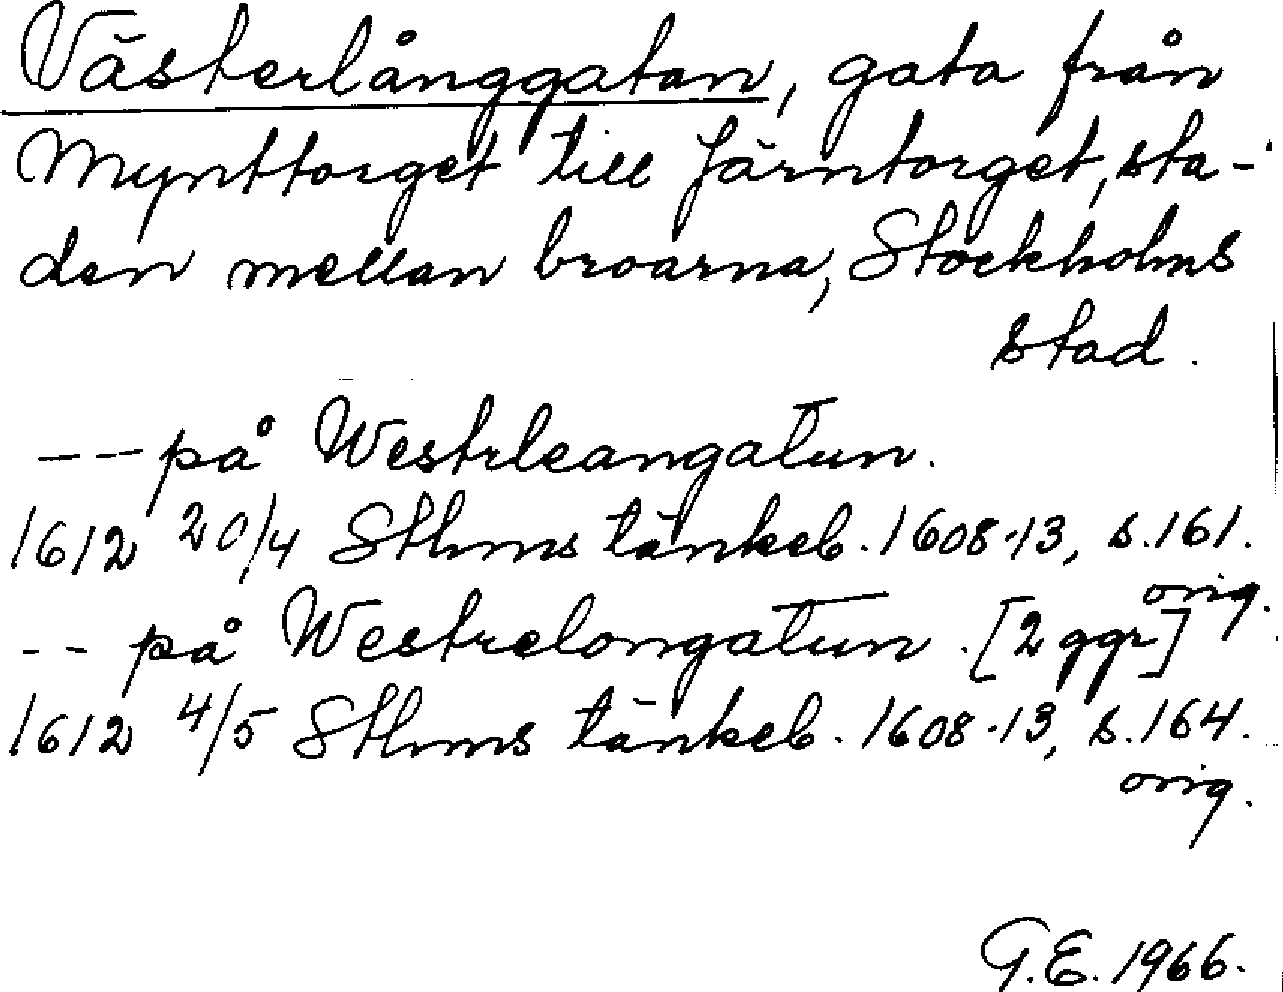 Västerlånggatan, gata från
Mynttorget till Järntorget, sta-
den mellan broarna, Stockholms
stad.
-- på Westrleangatun.
1612 20/4 Sthms tänkeb. 1608-13, s. 161.
orig.
-- på Westrelongatun. [2 ggr]
1612 4/5 Sthms tänkeb. 1608-13, s. 164.
orig.
G.E. 1966.